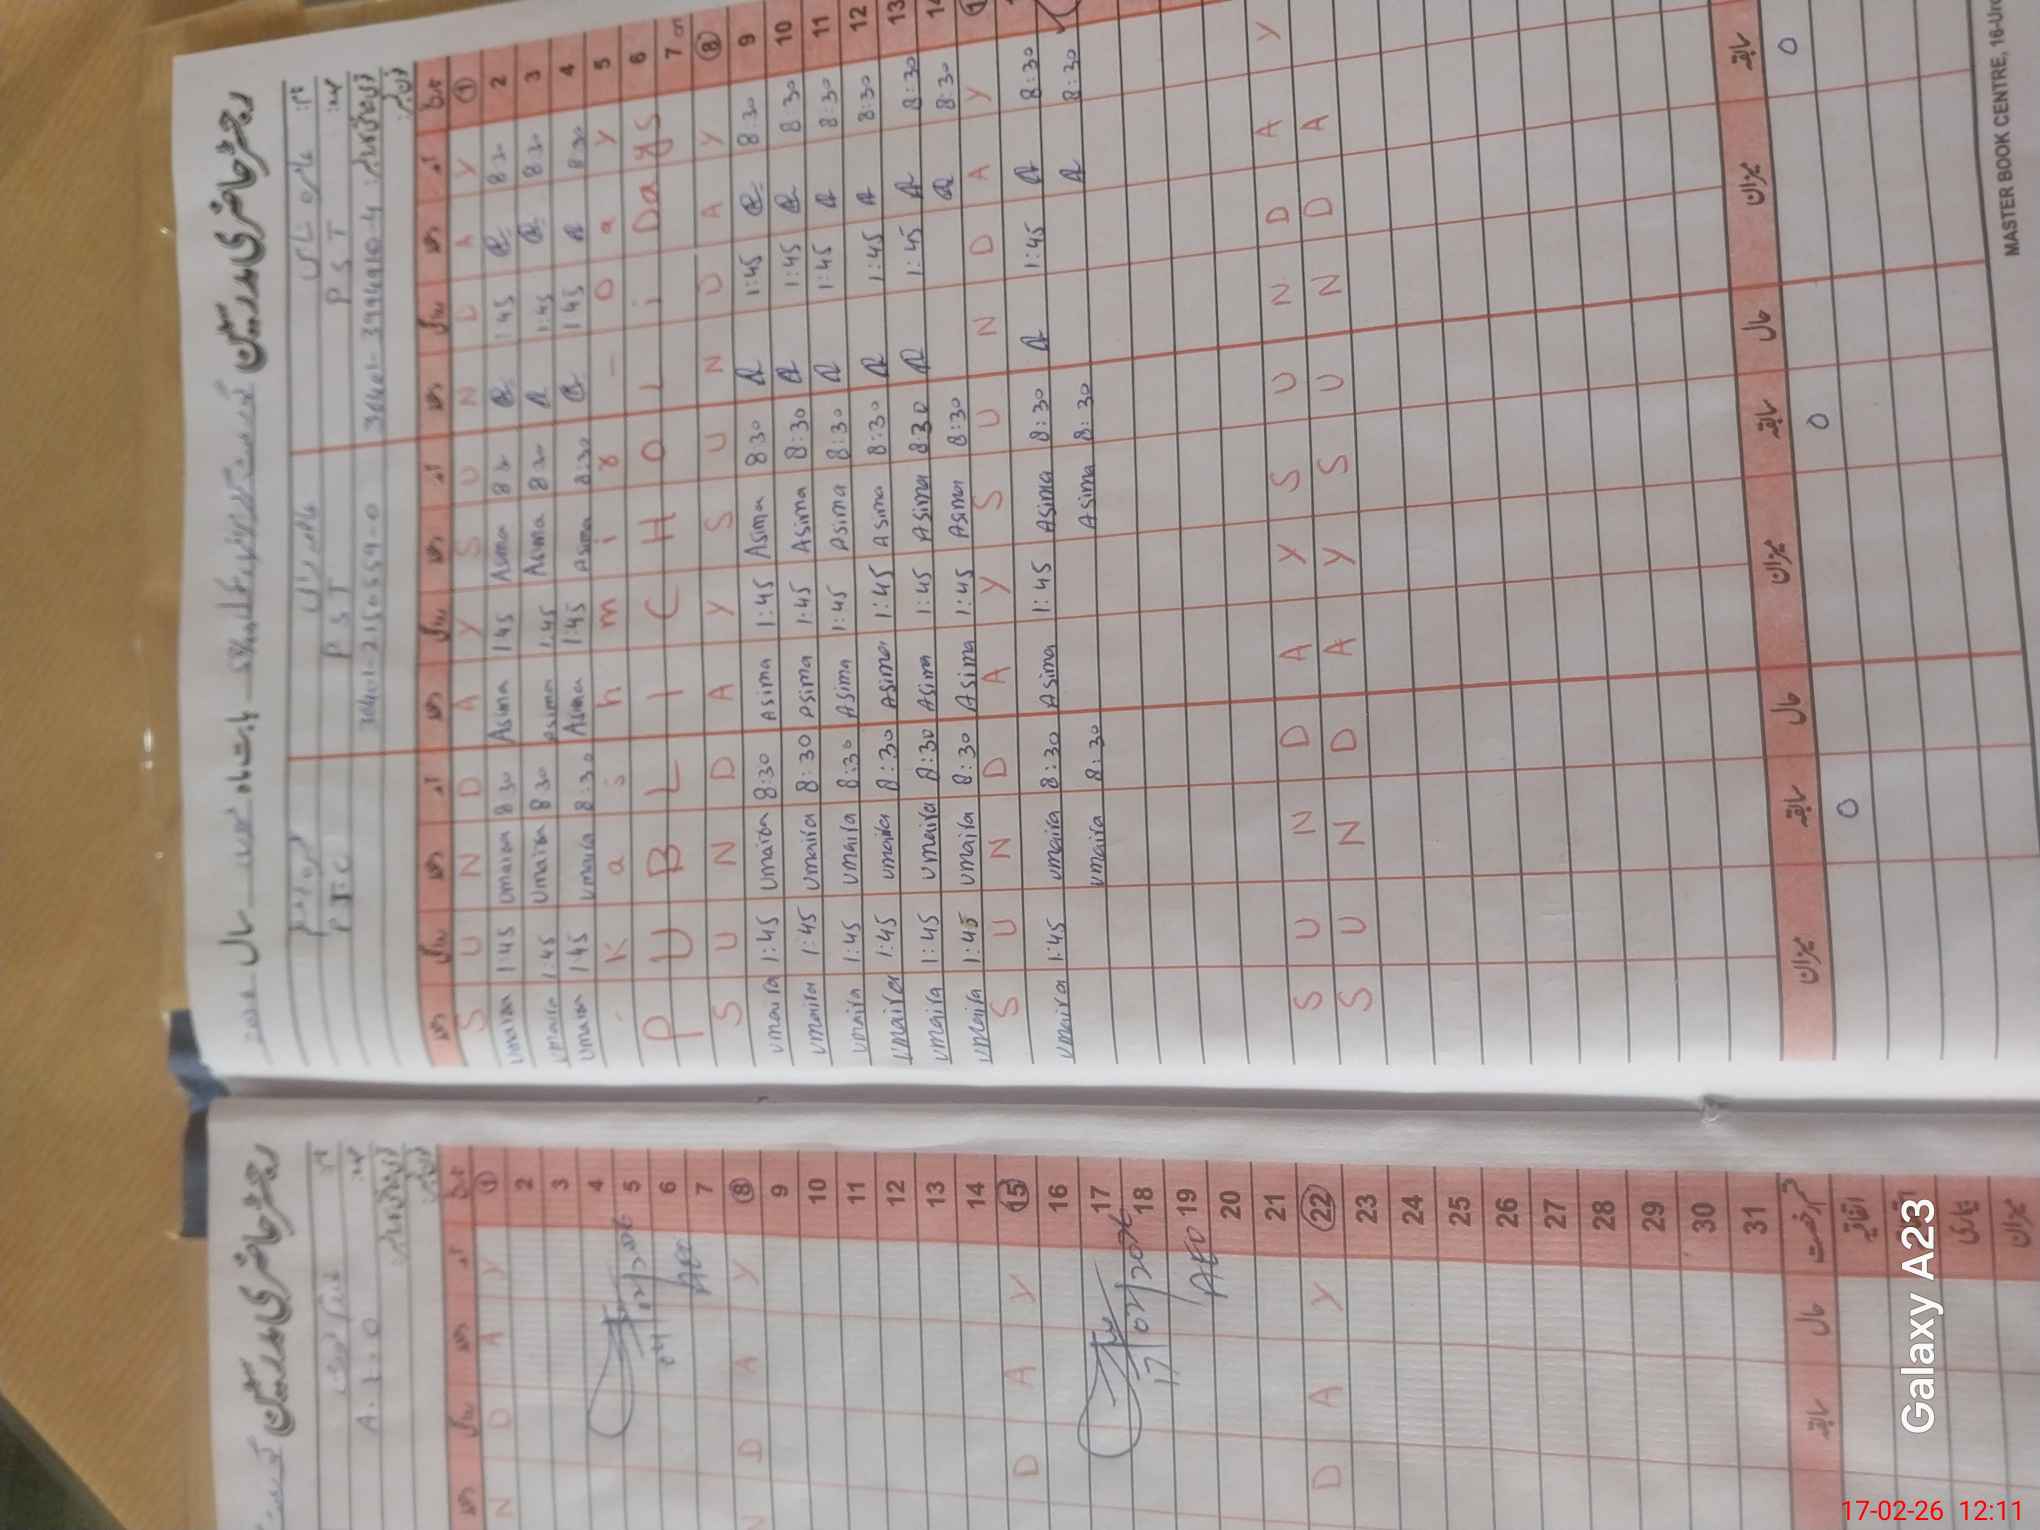 رجسٹر حاضری مدرسین
بابت ماہ
سال
نام:
عہدہ:
P S T
P S T
P T C
تاریخ آمد دستخط روانگی دستخط آمد دستخط روانگی دستخط آمد دستخط روانگی دستخط
1 S U N D A Y S U N D A Y
2 8 30 1:45 Asima 1 45 Asima 8 30 Umaira 1:45 Umaira
3 8:30 1:45 8 30 Asima 1:45 Asima 8 30 Umaira 1:45 Umaira
4 8:30 1 45 8:30 Asima 1:45 Asima 8:30 Umaira 1 45 Umaira
5 K a s h m i r D a y
6 PUBLIC HOLiDays
7
8 S U N D A Y S U N D A Y
9 8:30 1:45 8:30 Asima 1:45 Asima 8:30 Umaira 1:45 Umaira
10 8:30 1:45 8:30 Asima 1:45 Asima 8:30 Umaira 1:45 Umaira
11 8:30 1:45 8:30 Asima 1:45 Asima 8:30 Umaira 1:45 Umaira
12 8:30 1:45 8:30 Asima 1:45 Asima 8:30 Umaira 1:45 Umaira
13 8:30 1:45 8:30 Asima 1:45 Asima 8:30 Umaira 1:45 Umaira
14 8:30 8:30 Asima 1:45 Asima 8:30 Umaira 1:45 Umaira
S U N D A Y S U N D A Y
8:30 1:45 8:30 Asima 1:45 Asima 8:30 Umaira 1:45 Umaira
8:30 8:30 Asima 8:30 Umaira
S U N D A Y S U N D A Y
S U N D A Y S U N D A
سابقہ میزان حال سابقہ میزان حال سابقہ میزان
0 0 0
MASTER BOOK CENTRE, 16-Urd
رجسٹر حاضری مدرسین
نام:
عہدہ:
تاریخ آمد دستخط روانگی دستخط
1 N D A Y
2
3
4
5
6
7
8 N D A Y
9
10
11
12
13
14
15 D A Y
16
17
18
19
20
21
22 D A Y
23
24
25
26
27
28
29
30
31
17/02/2026
AEO
04/02/2026
AEO
حال سابقہ
اتفاقیہ
بیماری
میزان
Galaxy A23
17-02-26 12:11